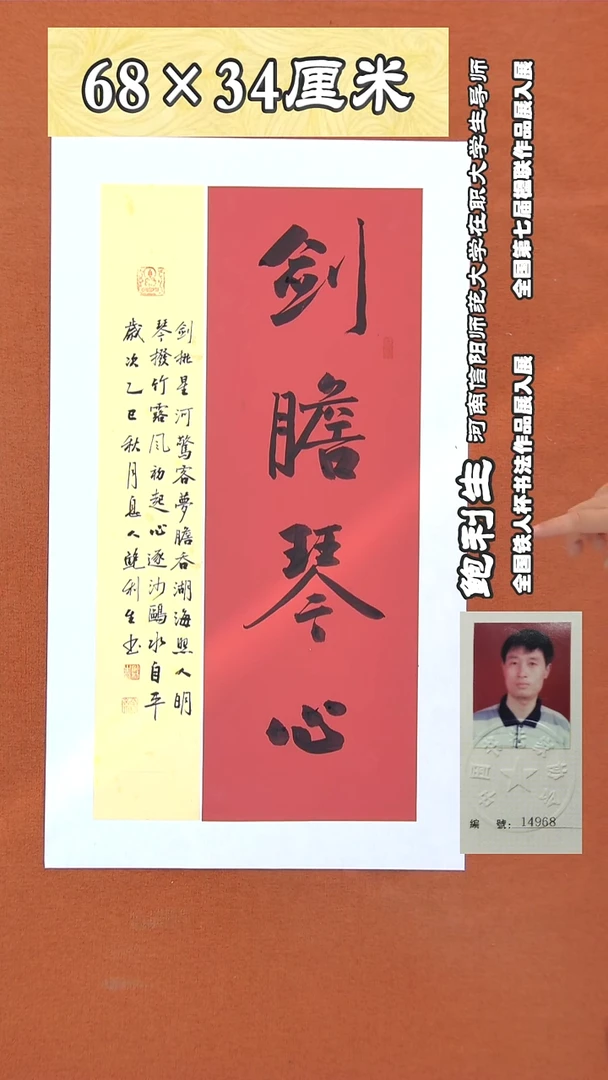 68×34厘米
剑
膽
琴
心
剑挑星河驚客夢膽吞湖海照人明
琴撥竹露風初起心逐沙鷗水自平
歲次乙巳秋月息人鲍利生书
鲍利生 河南信阳师范大学在职大学生导师
全国铁人杯书法作品展入展 全国第七届楹联作品展入展
編 號: 14968